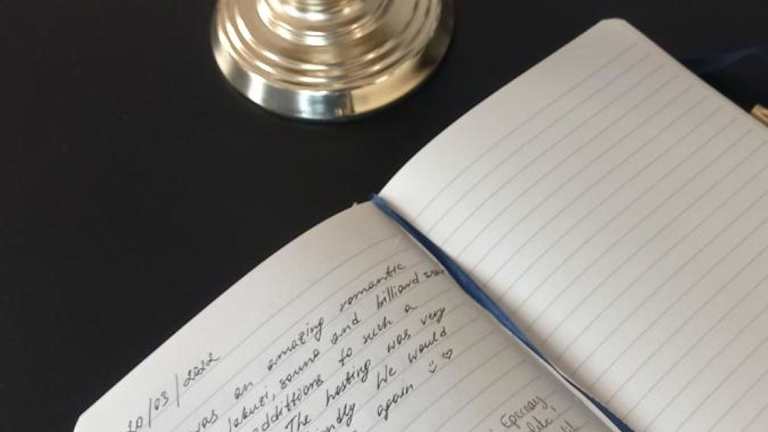 20/03/2022
was an amazing romantic
Jakuzi, sauna and billiard
additions to such a
The hosting was very
We would
again
Epernay